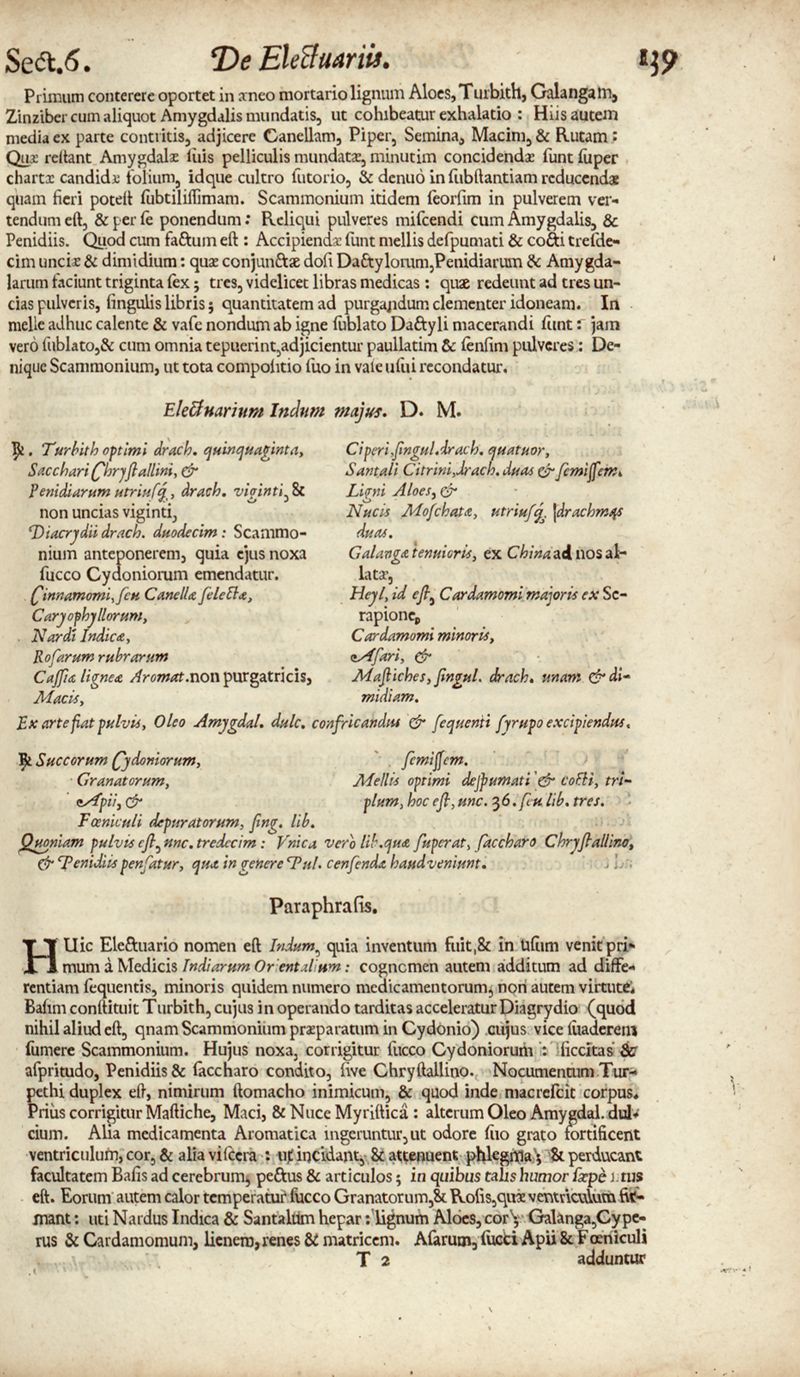 Sect.6. De Electuariis. 139
Primum conterere oportet in æneo mortario lignum Aloes, Turbith, Galangam,
Zinziber cum aliquot Amygdalis mundatis, ut cohibeatur exhalatio : Hiis autem
media ex parte contritis, adjicere Canellam, Piper, Semina, Macim, & Rutam :
Quæ restant Amygdalæ suis pelliculis mundatæ, minutim concidendæ sunt super
chartæ candidæ folium, idque cultro sutorio, & denuò in substantiam reducendæ
quam fieri potest subtilissimam. Scammonium itidem seorsim in pulverem ver-
tendum est, & per se ponendum : Reliqui pulveres miscendi cum Amygdalis, &
Penidiis. Quod cum factum est : Accipiendæ sunt mellis despumati & cocti tresde-
cim unciæ & dimidium : quæ conjunctæ dosi Dactylorum, Penidiarum & Amygda-
larum faciunt triginta sex ; tres, videlicet libras medicas : quæ redeunt ad tres un-
cias pulveris, singulis libris ; quantitatem ad purgandum clementer idoneam. In
melle adhuc calente & vase nondum ab igne sublato Dactyli macerandi sunt : jam
verò sublato, & cum omnia tepuerint, adjicientur paullatim & sensim pulveres : De-
nique Scammonium, ut tota compositio suo in vase usui recondatur.
Electuarium Indum majus. D. M.
℞. Turbith optimi drach. quinquaginta,
Sacchari Chrystallini, &
Penidiarum utriusq;, drach. viginti, &
non uncias viginti,
Diacrydii drach. duodecim : Scammo-
nium anteponerem, quia ejus noxa
succo Cydoniorum emendatur.
Cinnamomi, seu Canellæ selectæ,
Caryophyllorum,
Nardi Indicæ,
Rosarum rubrarum
Cassiæ ligneæ Aromat. non purgatricis,
Macis,
Ciperi, singul. drach. quatuor,
Santali Citrini, drach. duas & semissem.
Ligni Aloes, &
Nucis Moschatæ, utriusq; drachmas
duas.
Galangæ tenuioris, ex China ad nos al-
latæ,
Heyl, id est, Cardamomi majoris ex Se-
rapione,
Cardamomi minoris,
Asari, &
Mastiches, singul. drach. unam & di-
midiam.
Ex arte fiat pulvis, Oleo Amygdal. dulc. confricandus & sequenti syrupo excipiendus.
℞ Succorum Cydoniorum,
Granatorum,
Apii, &
Fœniculi depuratorum, sing. lib.
semissem.
Mellis optimi despumati & cocti, tri-
plum, hoc est, unc. 36. seu lib. tres.
Quoniam pulvis est, unc. tredecim : Vnica verò lib. quæ superat, saccharo Chrystallino,
& Penidiis pensatur, quæ in genere Pul. censenda haud veniunt.
Paraphrasis.
HUic Electuario nomen est Indum, quia inventum fuit, & in usum venit pri-
mum à Medicis Indiarum Orientalium : cognomen autem additum ad diffe-
rentiam sequentis, minoris quidem numero medicamentorum, non autem virtute.
Basim constituit Turbith, cujus in operando tarditas acceleratur Diagrydio (quod
nihil aliud est, qnam Scammonium præparatum in Cydonio) cujus vice suaderem
sumere Scammonium. Hujus noxa, corrigitur succo Cydoniorum : siccitas &
aspritudo, Penidiis & saccharo condito, sive Chrystallino. Nocumentum Tur-
pethi duplex est, nimirum stomacho inimicum, & quod inde macrescit corpus.
Priùs corrigitur Mastiche, Maci, & Nuce Myristicâ : alterum Oleo Amygdal. dul-
cium. Alia medicamenta Aromatica ingeruntur, ut odore suo grato fortificent
ventriculum, cor, & alia viscera : ut incidant, & attenuent phlegma ; & perducant
facultatem Basis ad cerebrum, pectus & articulos ; in quibus talis humor sæpè situs
est. Eorum autem calor temperatur succo Granatorum, & Rosis, quæ ventriculum fir-
mant : uti Nardus Indica & Santalum hepar : lignum Aloes, cor ; Galanga, Cype-
rus & Cardamomum, lienem, renes & matricem. Asarum, succi Apii & Fœniculi
T 2 adduntur